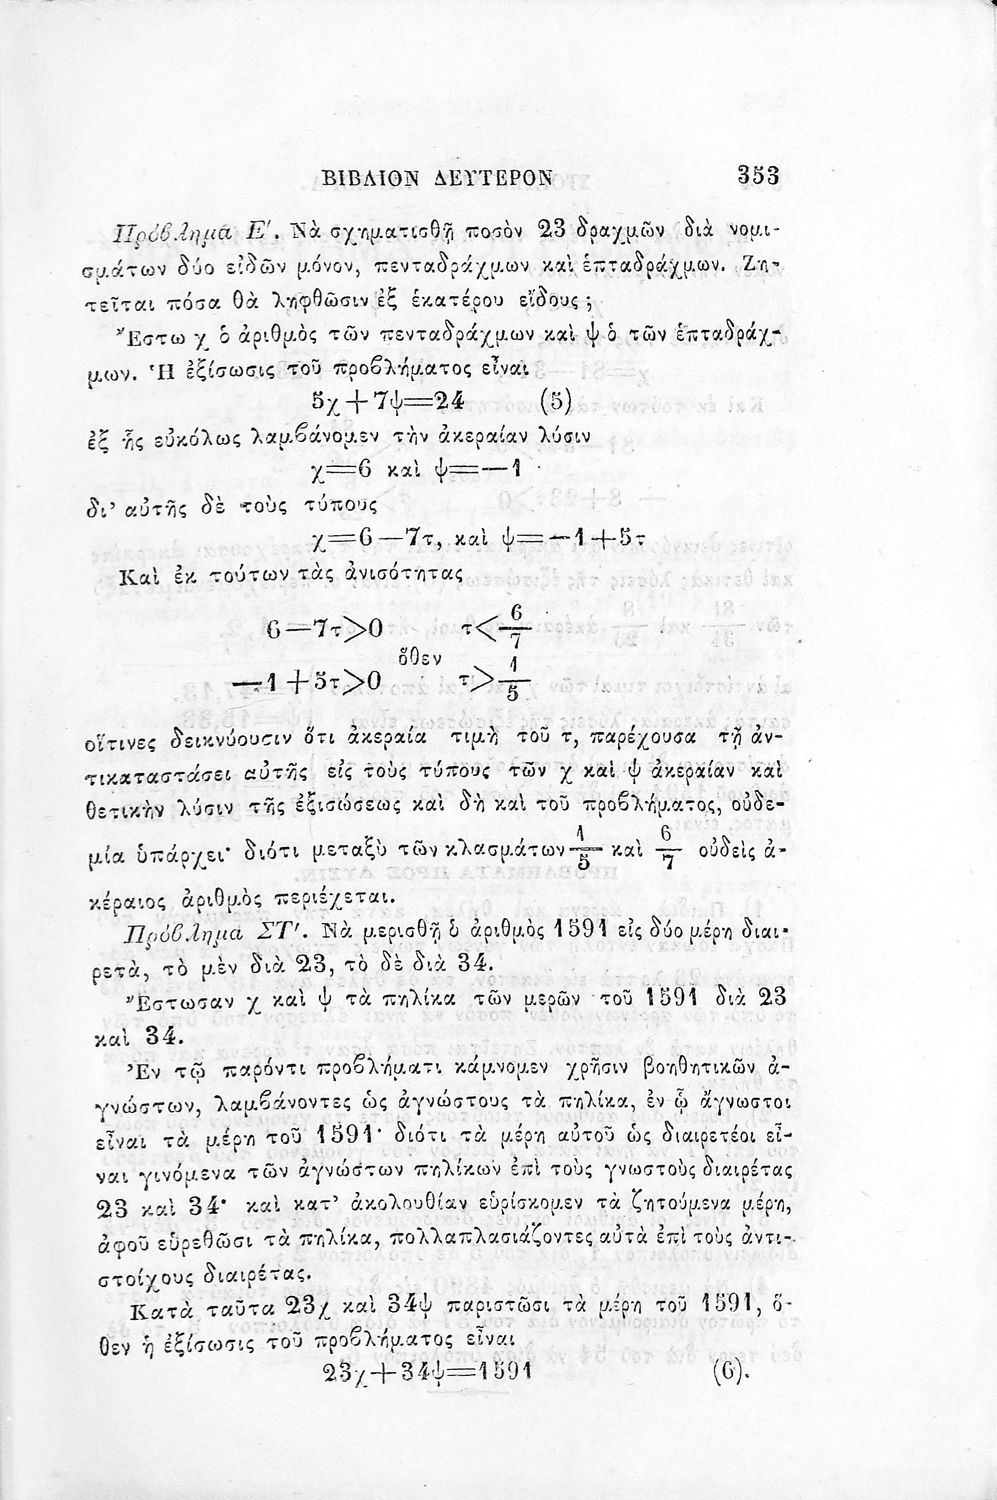 ΒΙΒΛΙΟΝ ΔΕΥΤΕΡΟΝ 353
Πρόβλημα Ε′. Νὰ σχηματισθῇ ποσὸν 23 δραχμῶν διὰ νομι-
σμάτων δύο εἰδῶν μόνον, πενταδράχμων καὶ ἑπταδράχμων. Ζη-
τεῖται πόσα θὰ ληφθῶσιν ἐξ ἑκατέρου εἴδους ;
Ἔστω χ ὁ ἀριθμὸς τῶν πενταδράχμων καὶ ψ ὁ τῶν ἑπταδράχ-
μων. Ἡ ἐξίσωσις τοῦ προβλήματος εἶναι
5χ+7ψ=24 (5)
ἐξ ἧς εὐκόλως λαμβάνομεν τὴν ἀκεραίαν λύσιν
χ=6 καὶ ψ=—1
δι' αὐτῆς δὲ τοὺς τύπους
χ=6—7τ, καὶ ψ=—1+5τ
Καὶ ἐκ τούτων τὰς ἀνισότητας
6—7τ>0 τ<6/7
ὅθεν
—1+5τ>0 τ>1/5
οἵτινες δεικνύουσιν ὅτι ἀκεραία τιμὴ τοῦ τ, παρέχουσα τῇ ἀν-
τικαταστάσει αὐτῆς εἰς τοὺς τύπους τῶν χ καὶ ψ ἀκεραίαν καὶ
θετικὴν λύσιν τῆς ἐξισώσεως καὶ δὴ καὶ τοῦ προβλήματος, οὐδε-
μία ὑπάρχει· διότι μεταξὺ τῶν κλασμάτων 1/5 καὶ 6/7 οὐδεὶς ἀ-
κέραιος ἀριθμὸς περιέχεται.
Πρόβλημα ΣΤ′. Νὰ μερισθῇ ὁ ἀριθμὸς 1591 εἰς δύο μέρη διαι-
ρετὰ, τὸ μὲν διὰ 23, τὸ δὲ διὰ 34.
Ἔστωσαν χ καὶ ψ τὰ πηλίκα τῶν μερῶν τοῦ 1591 διὰ 23
καὶ 34.
Ἐν τῷ παρόντι προβλήματι κάμνομεν χρῆσιν βοηθητικῶν ἀ-
γνώστων, λαμβάνοντες ὡς ἀγνώστους τὰ πηλίκα, ἐν ᾧ ἄγνωστοι
εἶναι τὰ μέρη τοῦ 1591· διότι τὰ μέρη αὐτοῦ ὡς διαιρετέοι εἶ-
ναι γινόμενα τῶν ἀγνώστων πηλίκων ἐπὶ τοὺς γνωστοὺς διαιρέτας
23 καὶ 34· καὶ κατ' ἀκολουθίαν εὑρίσκομεν τὰ ζητούμενα μέρη,
ἀφοῦ εὑρεθῶσι τὰ πηλίκα, πολλαπλασιάζοντες αὐτὰ ἐπὶ τοὺς ἀντι-
στοίχους διαιρέτας.
Κατὰ ταῦτα 23χ καὶ 34ψ παριστῶσι τὰ μέρη τοῦ 1591, ὅ-
θεν ἡ ἐξίσωσις τοῦ προβλήματος εἶναι
23χ+34ψ=1591 (6).